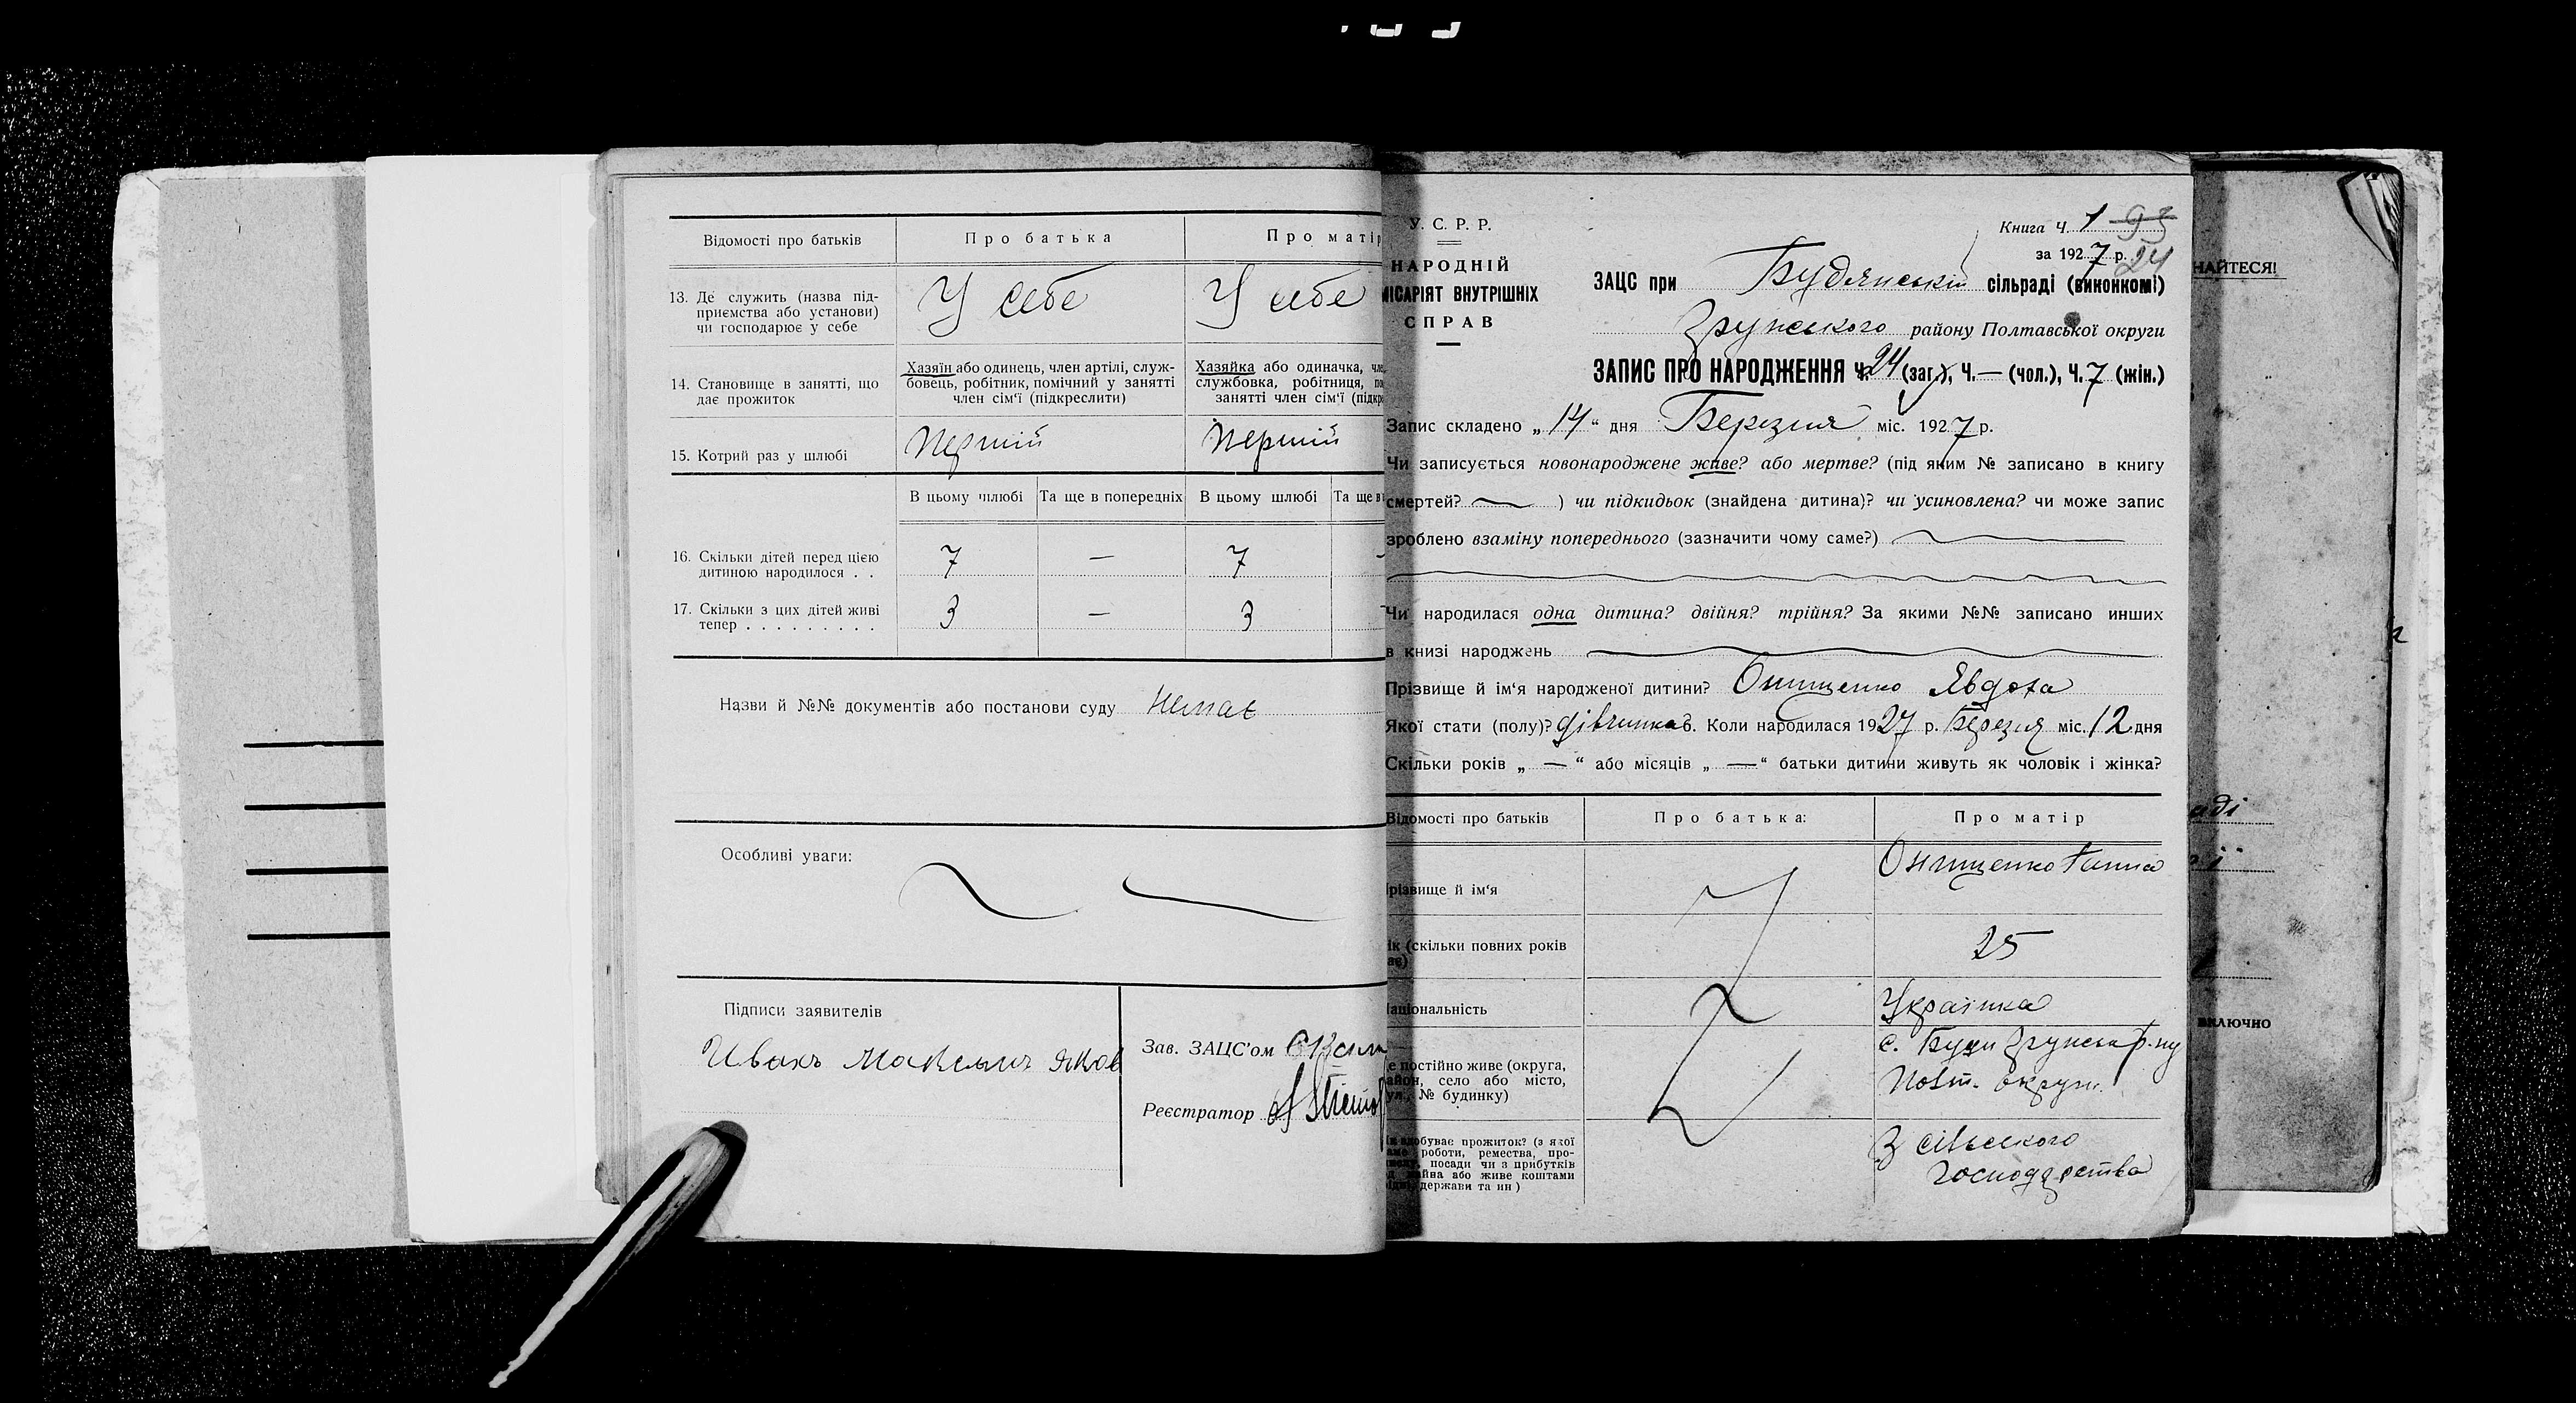 Відомості про батьків Про батька Про матір
13. Де служить (назва під-
приємства або установи)
чи господарює у себе
У себе У себе
14. Становище в занятті, що
дає прожиток
Хазяїн або одинець, член артілі, служ-
бовець, робітник, помічний у занятті
член сім'ї (підкреслити)
Хазяйка або одиначка, чле
службовка, робітниця, по
занятті член сім'ї (підкре
15. Котрий раз у шлюбі Перший Перший
В цьому шлюбі Та ще в попередніх В цьому шлюбі Та ще в
16. Скільки дітей перед цією
дитиною народилося . . 7 — 7
17. Скільки з цих дітей живі
тепер . . . . . . . . . 3 — 3
Назви й №№ документів або постанови суду Немає
Особливі уваги:
Підписи заявителів
Зав. ЗАЦС'ом
Реєстратор
У. С. Р. Р.
НАРОДНІЙ
МІСАРІЯТ ВНУТРІШНІХ
СПРАВ
Книга Ч. 1 93
за 1927 р. 24
ЗАЦС при Будянській сільраді (виконкомі)
Зрунського району Полтавської округи
ЗАПИС ПРО НАРОДЖЕННЯ Ч. 24 (заг.), Ч. — (чол.), Ч. 7 (жін.)
Запис складено „14“ дня Березня міс. 1927 р.
Чи записується новонароджене живе? або мертве? (під яким № записано в книгу
смертей? ) чи підкидьок (знайдена дитина)? чи усиновлена? чи може запис
зроблено взаміну попереднього (зазначити чому саме?)
Чи народилася одна дитина? двійня? трійня? За якими №№ записано инших
в книзі народжень
Прізвище й ім'я народженої дитини? Онищенко Явдоха
Якої стати (полу)? дівчинка 6. Коли народилася 1927 р. Березня міс. 12 дня
Скільки років „ — “ або місяців „ — “ батьки дитини живуть як чоловік і жінка?
Відомості про батьків Про батька: Про матір
Прізвище й ім'я Онищенко Ганна
ік (скільки повних років
ає) 25
аціональність Українка
е постійно живе (округа,
айон, село або місто,
ул., № будинку)
с. Буди Зрунськ р-ну
Полт. округи
добуває прожиток? (з якої
роботи, ремества, про-
посади чи з прибутків
айна або живе коштами
держави та ин)
З сільського
господарства
НАЙТЕСЯ!
аді
ії
включно